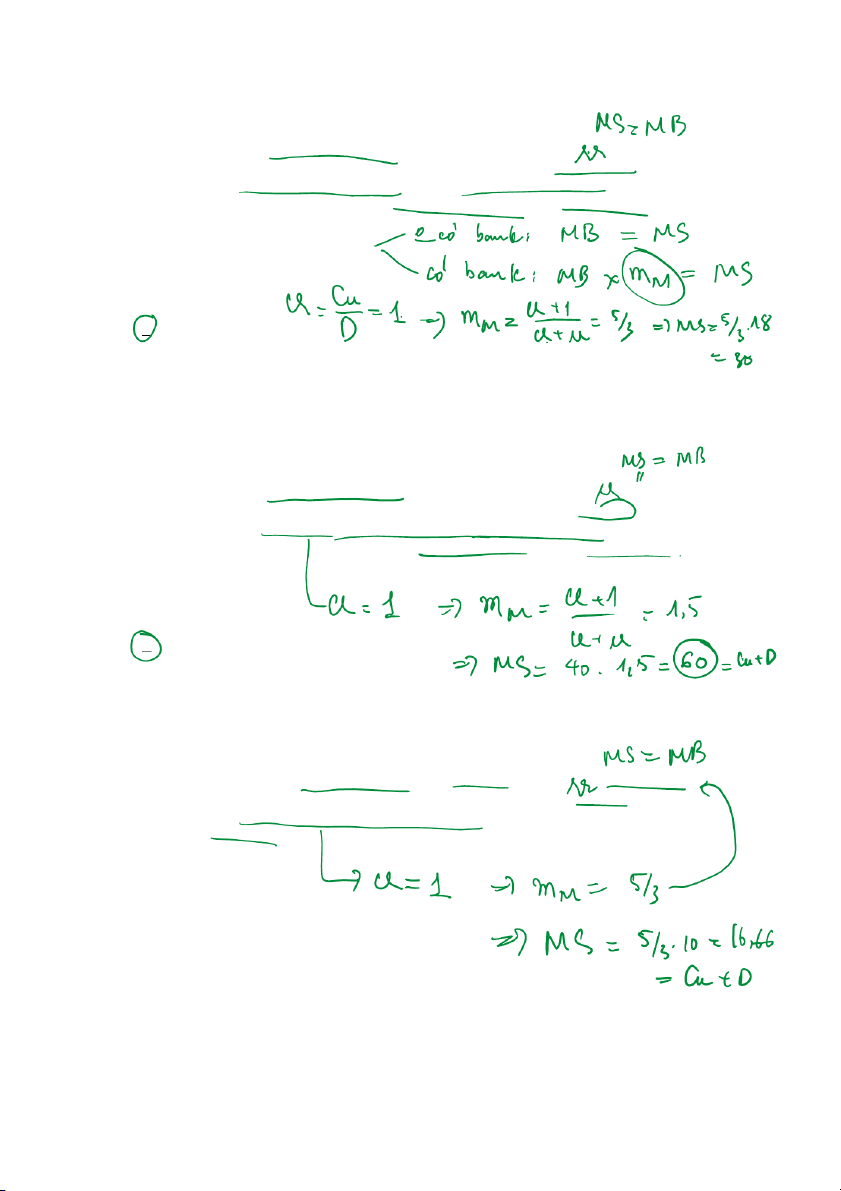 MS = MB
rr
o có bank: MB = MS
có bank: MB x mM = MS
cr = Cu/D = 1 => mM = cr+1/cr+rr = 5/3 => MS = 5/3.18
= 30
MS = MB
rr
cr = 1 => mM = cr+1/cr+rr = 1,5
=> MS = 40 . 1,5 = 60 = Cu+D
MS = MB
rr
cr = 1 => mM = 5/3
=> MS = 5/3.10 = 16,66
= Cu + D